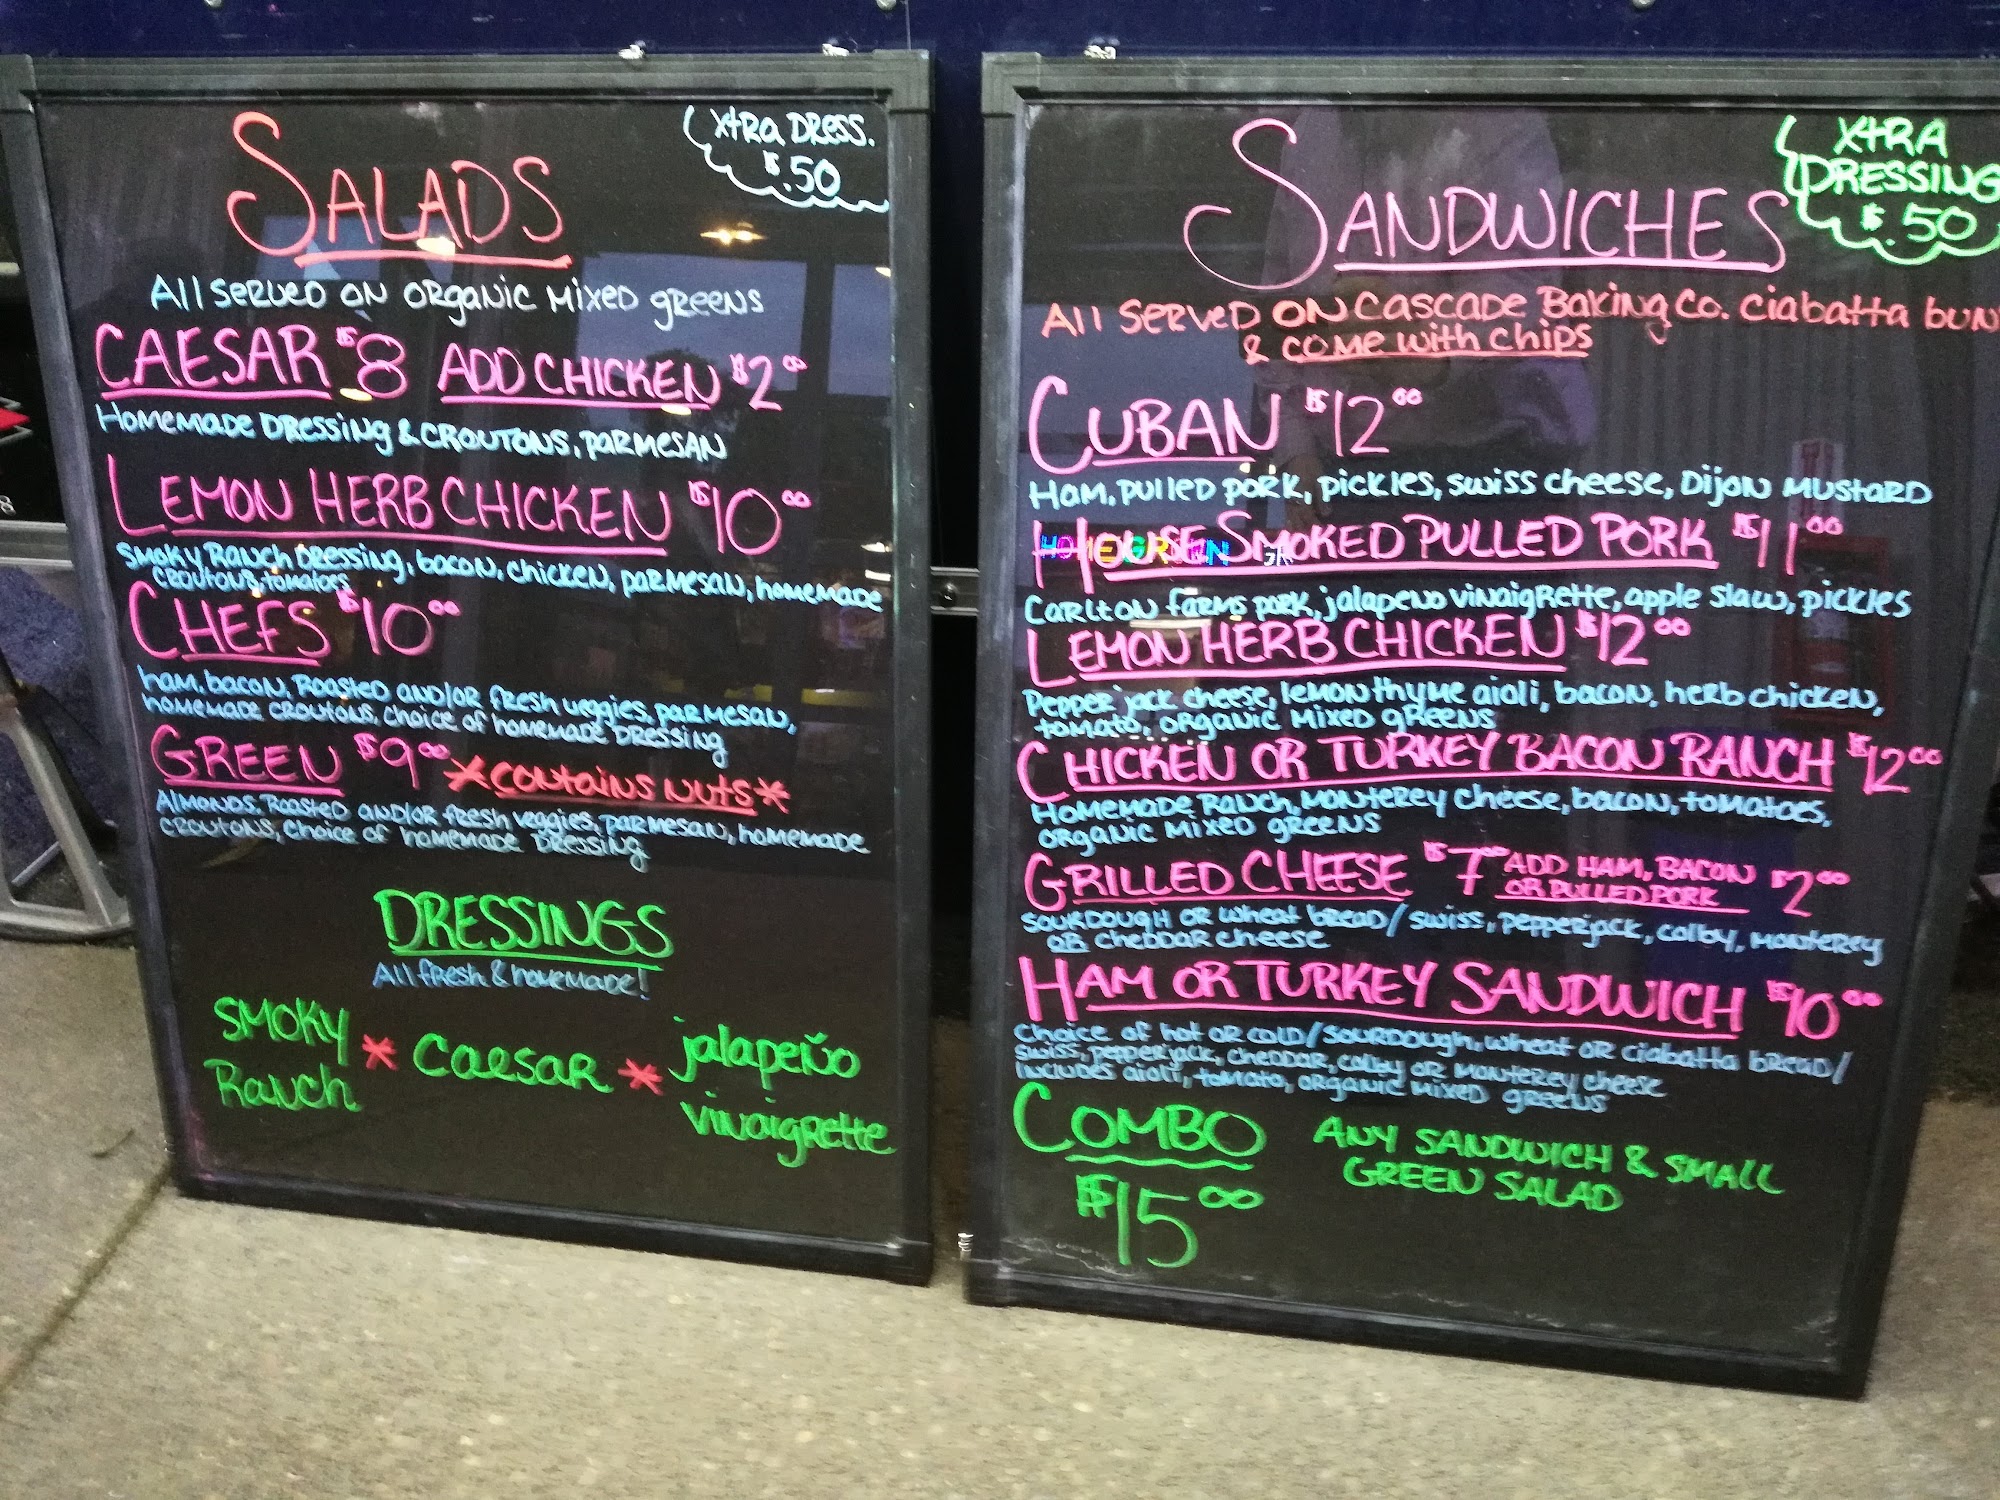 SALADS
XTRA DRESS.
$.50
All SERVED ON ORGANIC MIXED GREENS
CAESAR $8 ADD CHICKEN $2.00
HOMEMADE DRESSING & CROUTONS, PARMESAN
LEMON HERB CHICKEN $10.00
SMOKY RANCH DRESSING, BACON, CHICKEN, PARMESAN, HOMEMADE
CROUTONS, TOMATOES
CHEFS $10.00
HAM, BACON, ROASTED AND/OR FRESH VEGGIES, PARMESAN,
HOMEMADE CROUTONS, CHOICE OF HOMEMADE DRESSING
GREEN $9.00 *CONTAINS NUTS*
ALMONDS, ROASTED AND/OR FRESH VEGGIES, PARMESAN, HOMEMADE
CROUTONS, CHOICE OF HOMEMADE DRESSING
DRESSINGS
All FRESH & HOMEMADE!
SMOKY
RANCH * CAESAR * jalapeño
vinaigrette
SANDWICHES
XTRA
DRESSING
$.50
All SERVED ON CASCADE BAKING CO. CIABATTA BUN
& COME WITH CHIPS
CUBAN $12.00
HAM, PULLED PORK, PICKLES, SWISS CHEESE, DIJON MUSTARD
HOUSE SMOKED PULLED PORK $11.00
CARLTON FARMS PORK, JALAPENO VINAIGRETTE, APPLE SLAW, PICKLES
LEMON HERB CHICKEN $12.00
PEPPER JACK CHEESE, LEMON THYME AIOLI, BACON, HERB CHICKEN,
TOMATO, ORGANIC MIXED GREENS
CHICKEN OR TURKEY BACON RANCH $12.00
HOMEMADE RANCH, MONTEREY CHEESE, BACON, TOMATOES,
ORGANIC MIXED GREENS
GRILLED CHEESE $7.00 ADD HAM, BACON
OR PULLED PORK $2.00
SOURDOUGH OR WHEAT BREAD/ SWISS, PEPPERJACK, COLBY, MONTEREY
OR CHEDDAR CHEESE
HAM OR TURKEY SANDWICH $10.00
CHOICE OF HOT OR COLD/SOURDOUGH, WHEAT OR CIABATTA BREAD/
SWISS, PEPPERJACK, CHEDDAR, COLBY OR MONTEREY CHEESE
INCLUDES AIOLI, TOMATO, ORGANIC MIXED GREENS
COMBO
$15.00
ANY SANDWICH & SMALL
GREEN SALAD